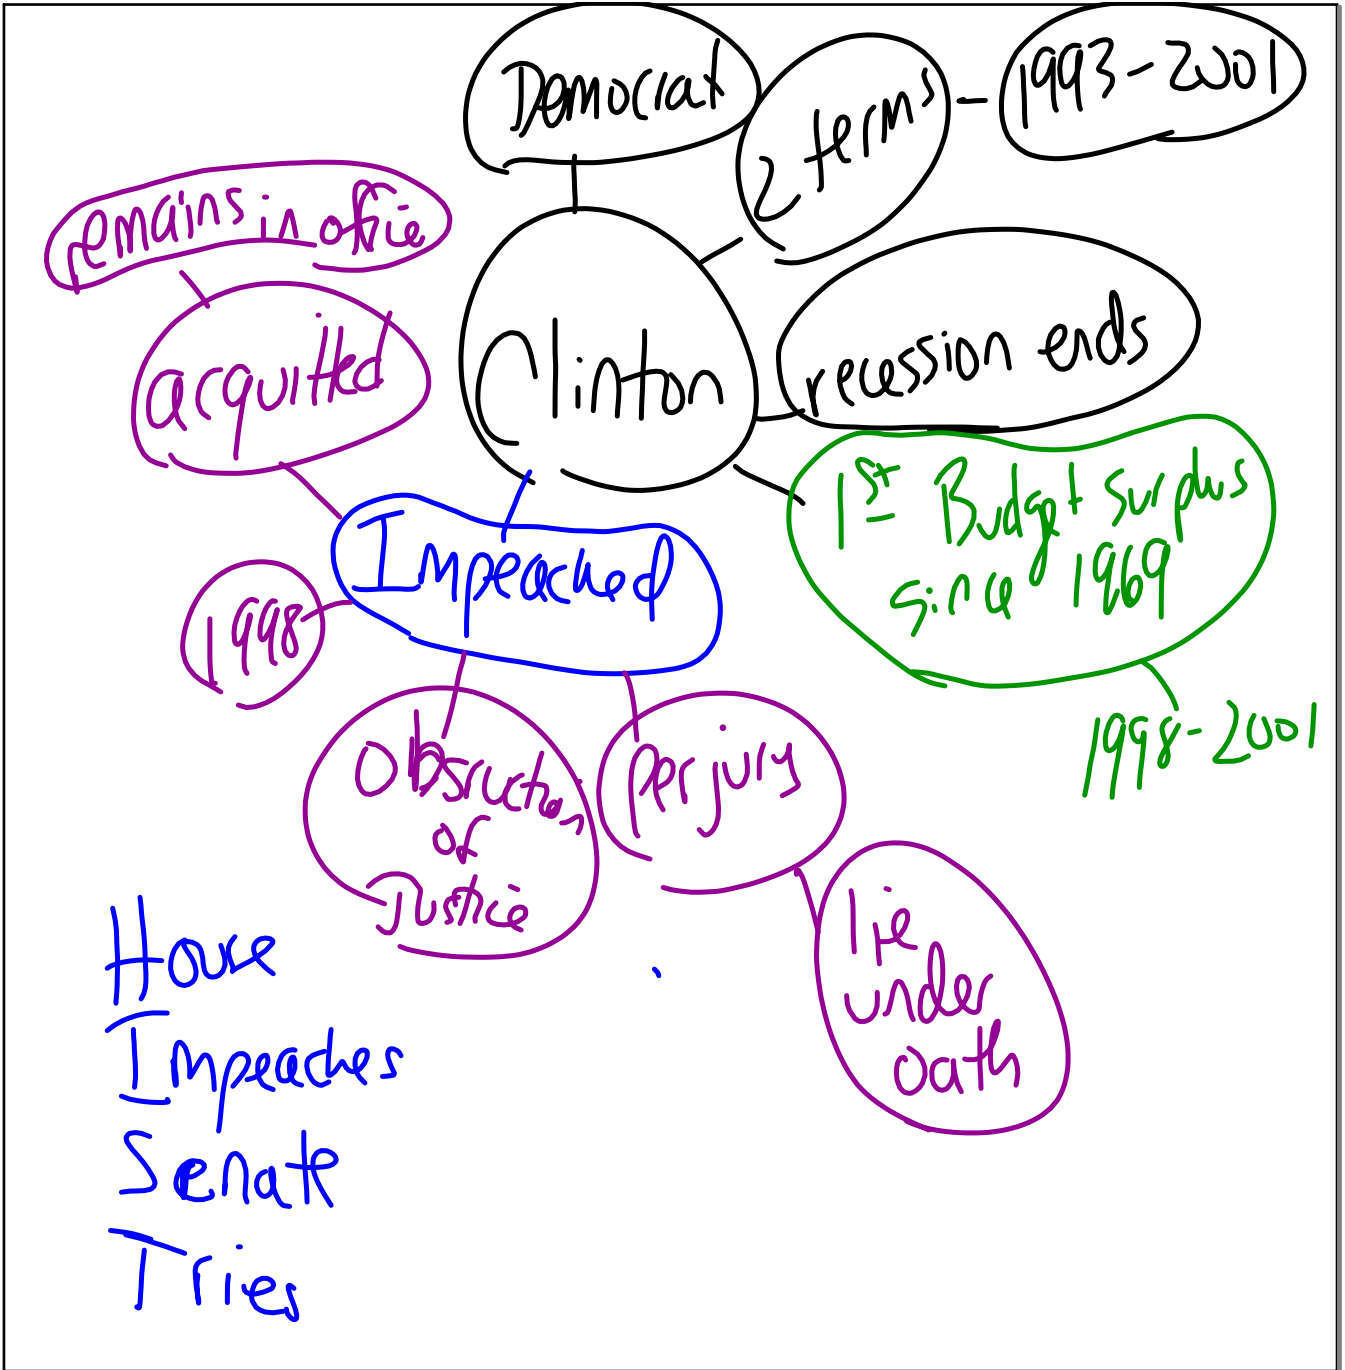 Democrat
2 terms - 1993-2001
remains in office
acquitted
Clinton
recession ends
1st Budget surplus
since 1969
1998-2001
Impeached
1998
Obsruction
of
Justice
perjury
lie
under
oath
House
Impeaches
Senate
Tries